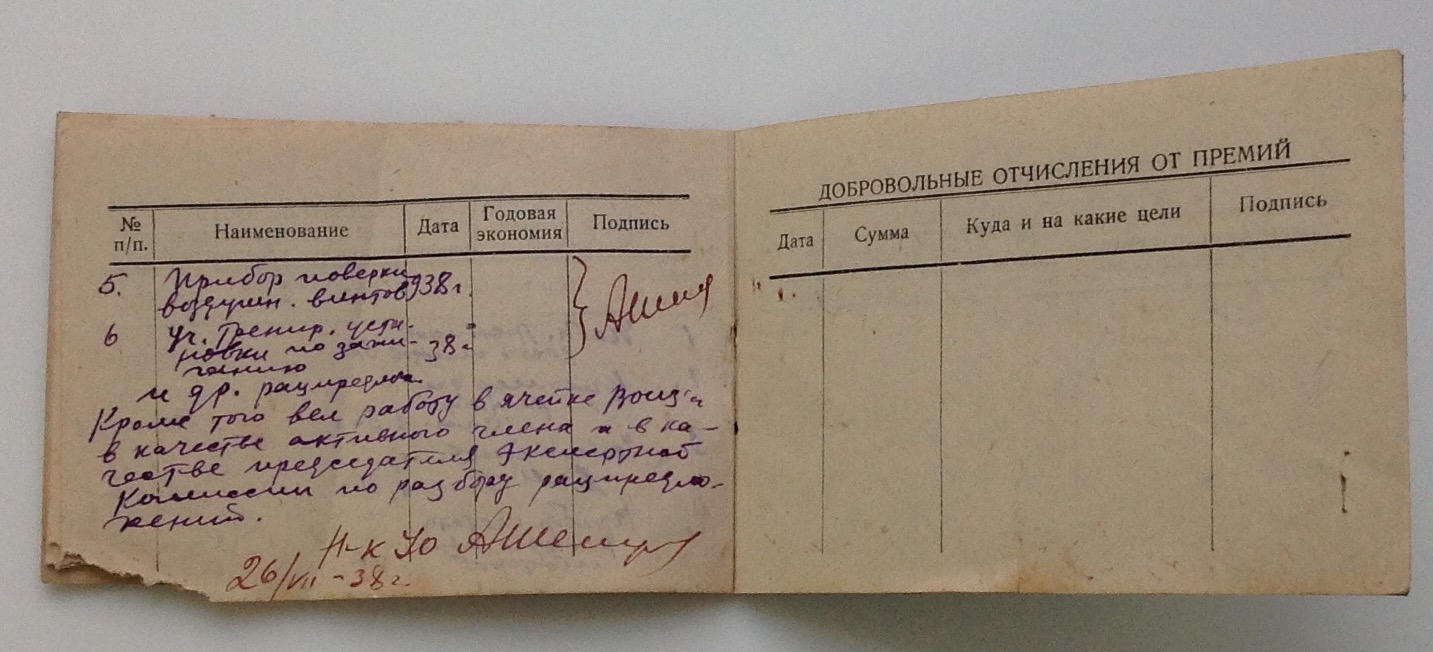 № п/п. Наименование Дата Годовая экономия Подпись
5. Прибор поверки
воздушн. винтов 938 г.
6 Уч. Тренир. уста-
новки по зажи- 38 г.
ганию
и др. рацпредлож.
Кроме того вел работу в ячейке ВОИЗ'а
в качестве активного члена и в ка-
честве председателя Экспертной
Комиссии по разбору рацпредло-
жений.
Н-к УО
26/VII-38 г.
ДОБРОВОЛЬНЫЕ ОТЧИСЛЕНИЯ ОТ ПРЕМИЙ
Дата Сумма Куда и на какие цели Подпись